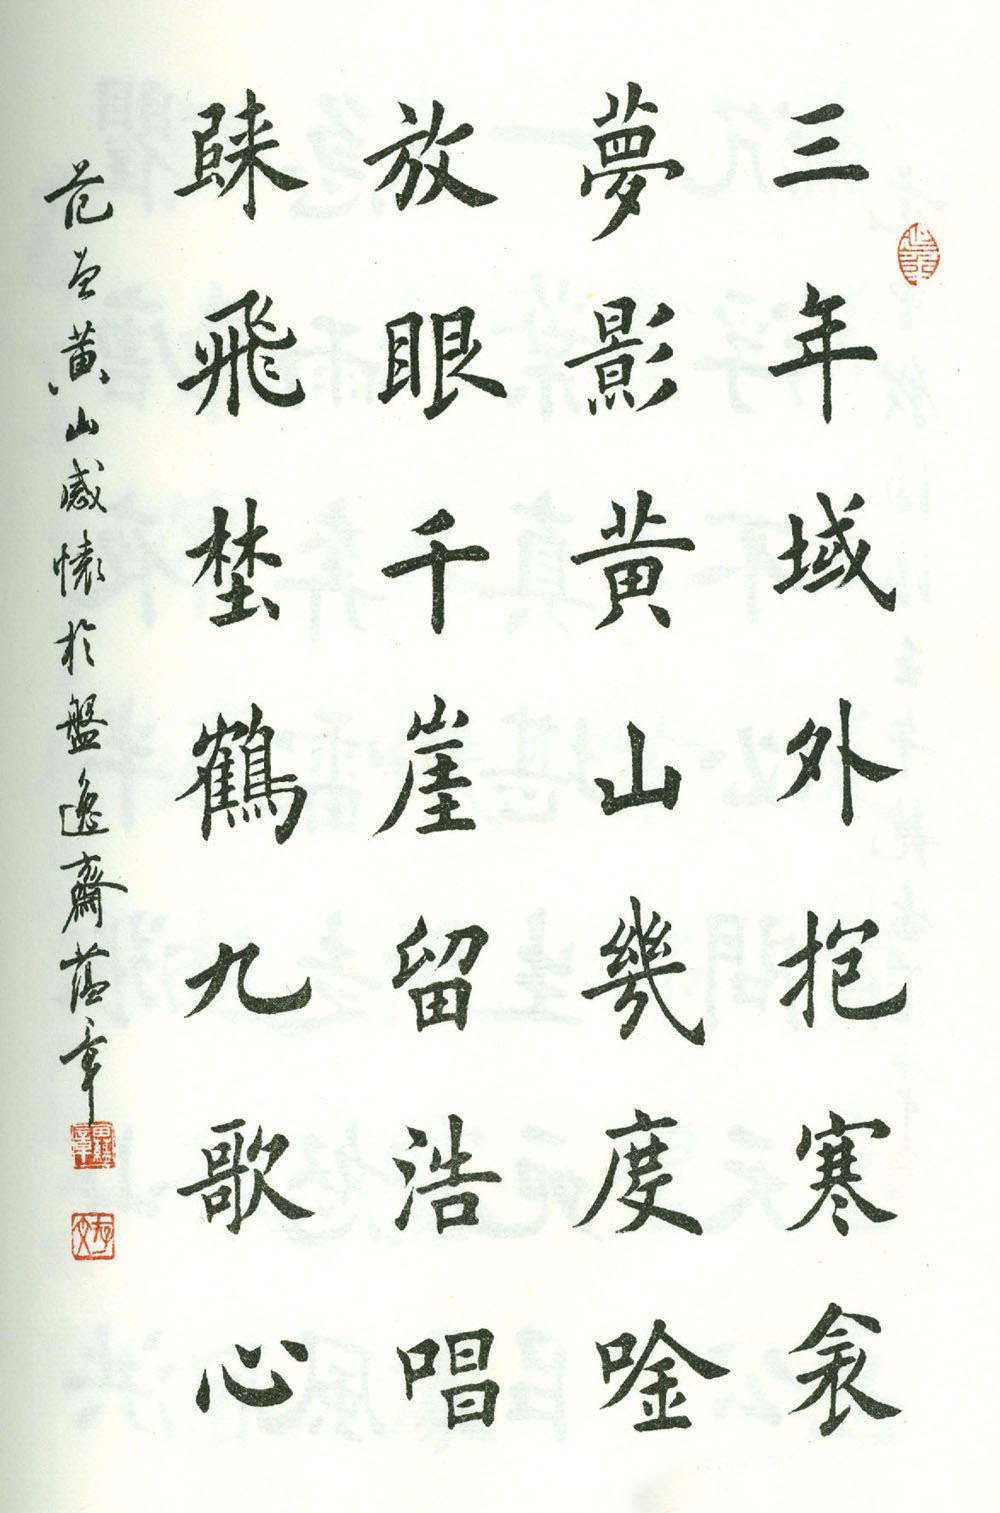 三年域外抱寒衾
夢影黄山幾度唫
放眼千崖留浩唱
歸飛埜鶴九歌心
范曾黄山感懷於盤逸齋藴章